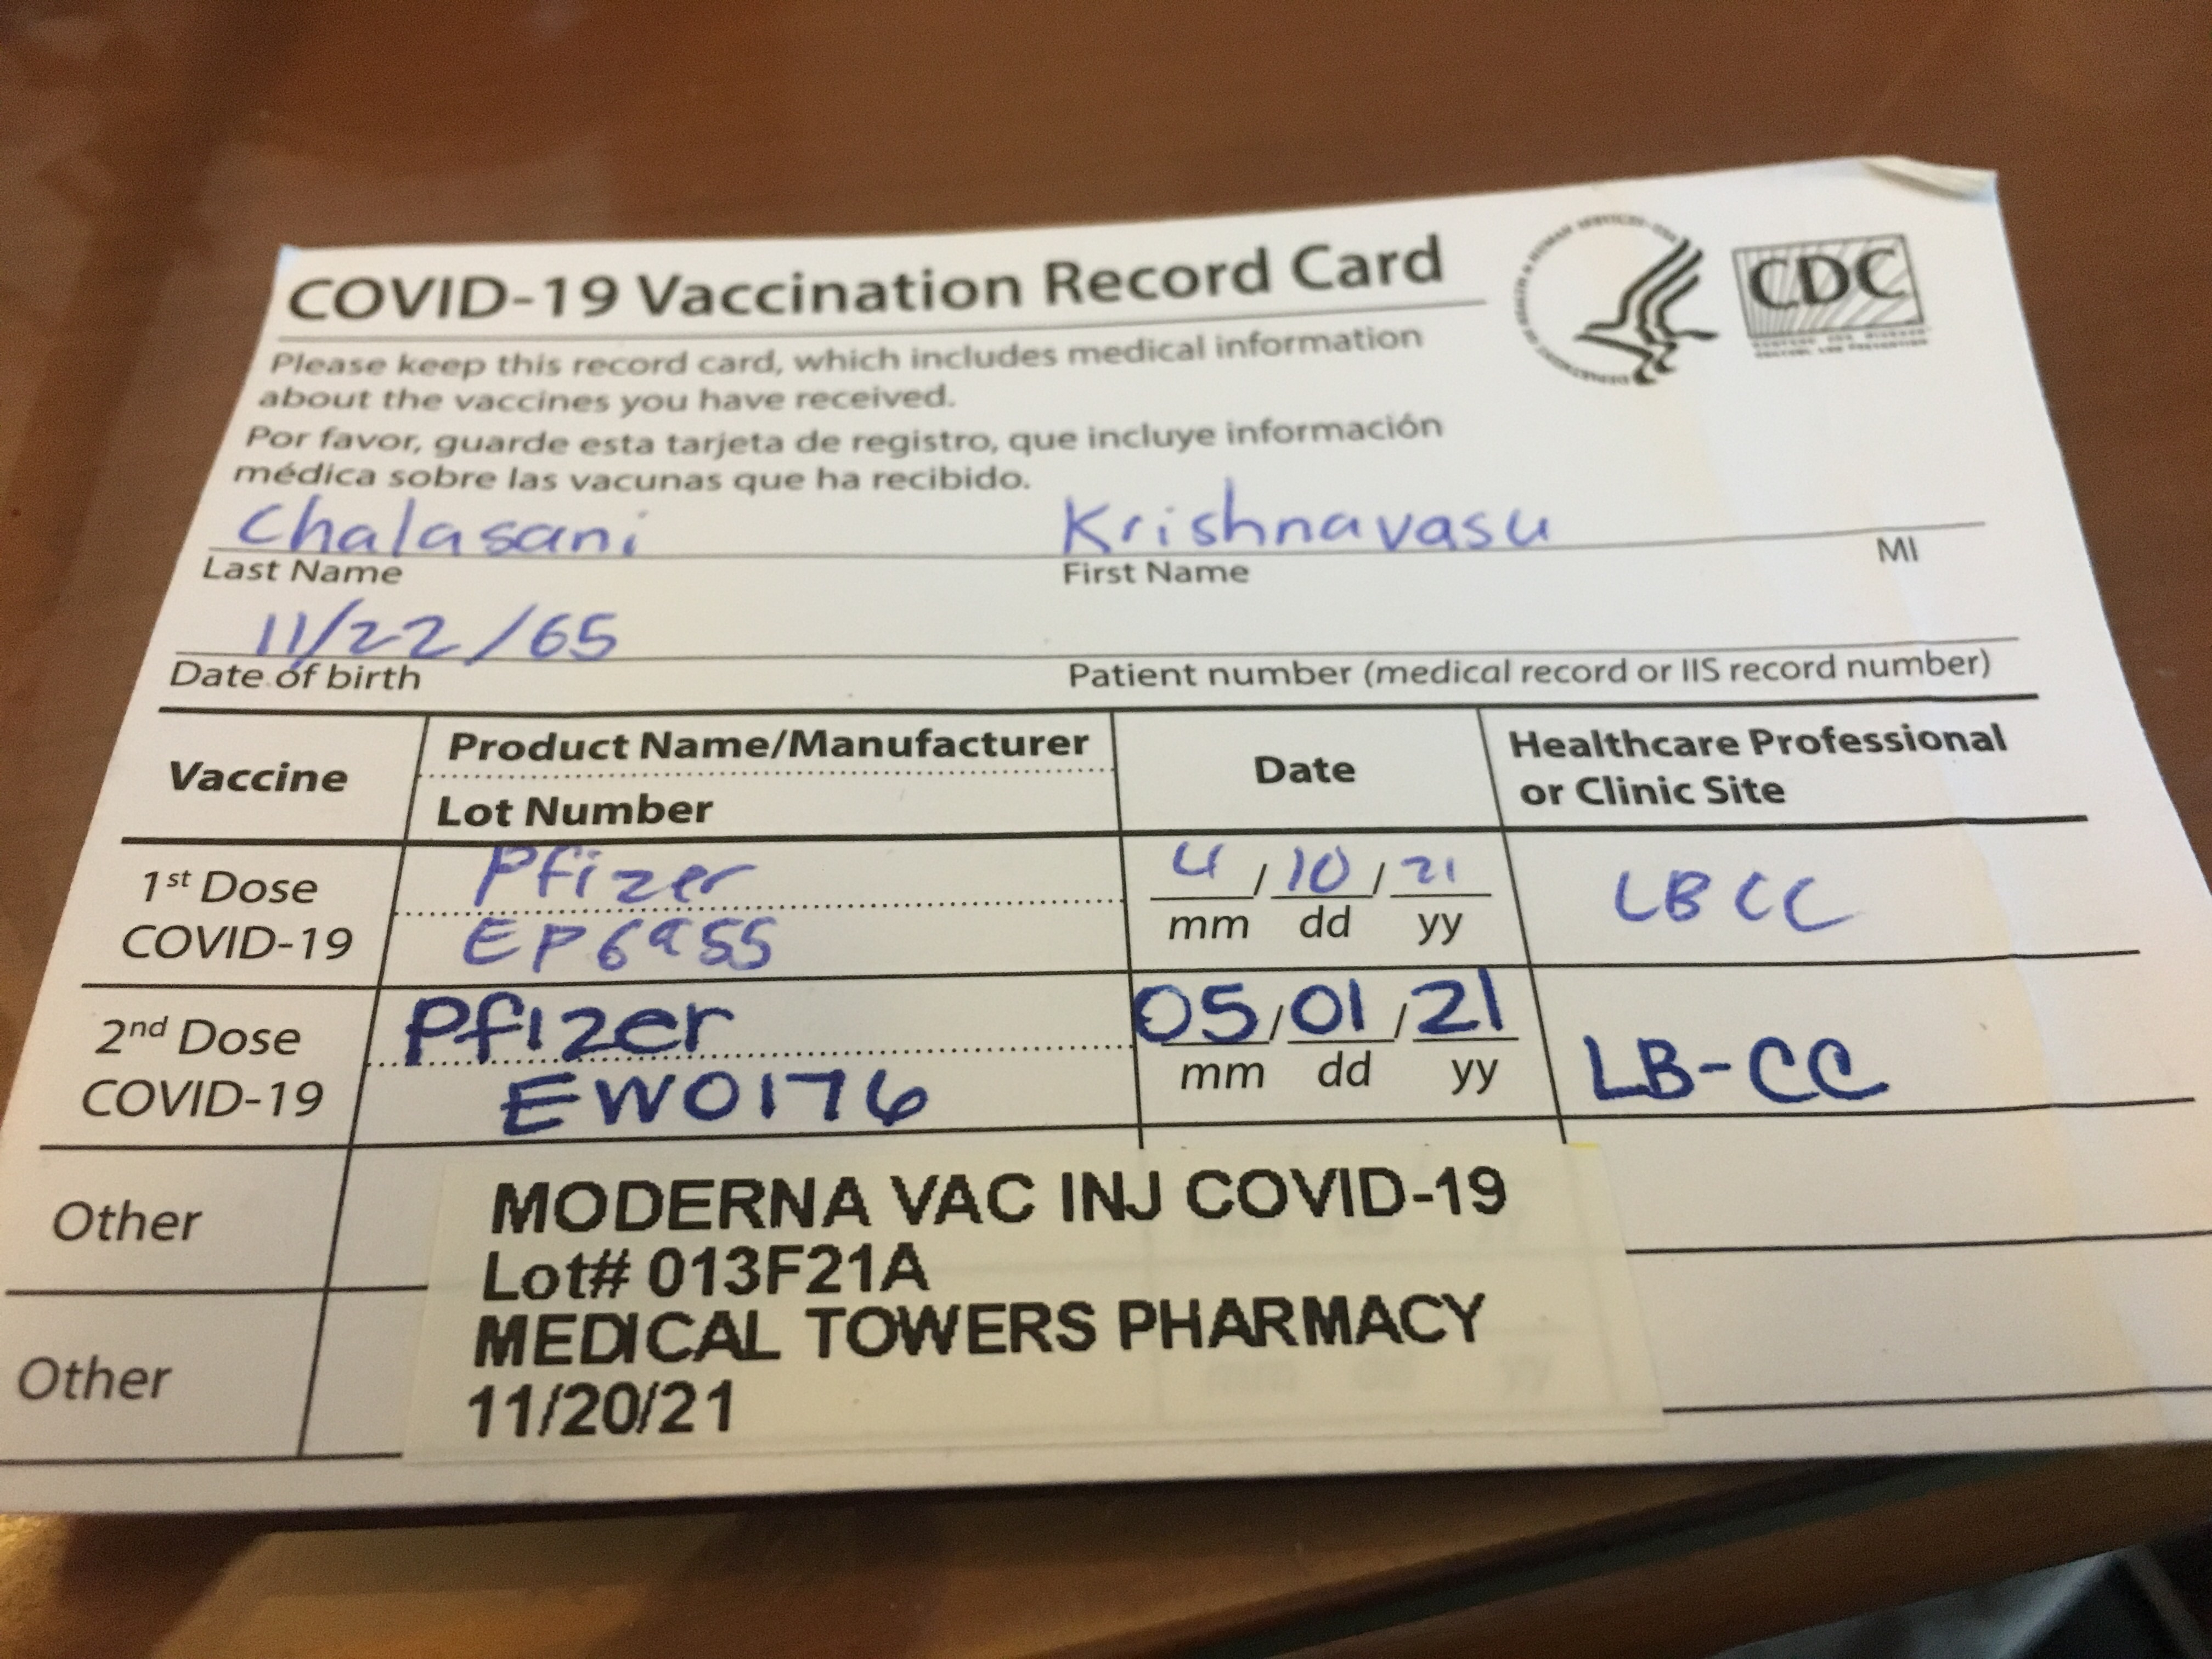 COVID-19 Vaccination Record Card
CDC
Please keep this record card, which includes medical information
about the vaccines you have received.
Por favor, guarde esta tarjeta de registro, que incluye información
médica sobre las vacunas que ha recibido.
Chalasani Krishnavasu
Last Name First Name MI
11/22/65
Date of birth Patient number (medical record or IIS record number)
Vaccine Product Name/Manufacturer Date Healthcare Professional
Lot Number or Clinic Site
1st Dose Pfizer 4/10/21 LBCC
COVID-19 mm dd yy
2nd Dose Pfizer 05/01/21 LB-CC
COVID-19 EW0176 mm dd yy
Other MODERNA VAC INJ COVID-19
Lot# 013F21A
Other MEDICAL TOWERS PHARMACY
11/20/21